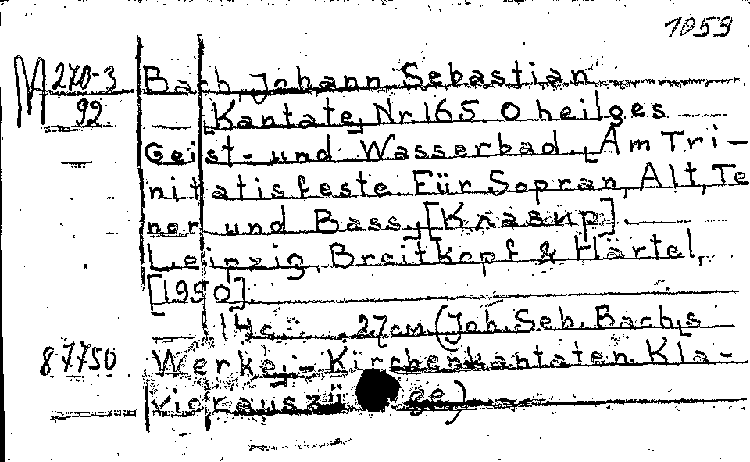 1059
M 270-3 Bach, Johann Sebastian
92 Kantate, Nr. 165 O heilges
Geist- und Wasserbad. Am Tri-
nitatisfeste Für Sopran, Alt, Te
nor und Bass. [Клавир].
Leipzig, Breitkopf & Härtel,
[1950].
14 с. 27 см (Joh. Seb. Bach,s
87750 Werke. - Kirchenkantaten. Kla-
vierauszüge)